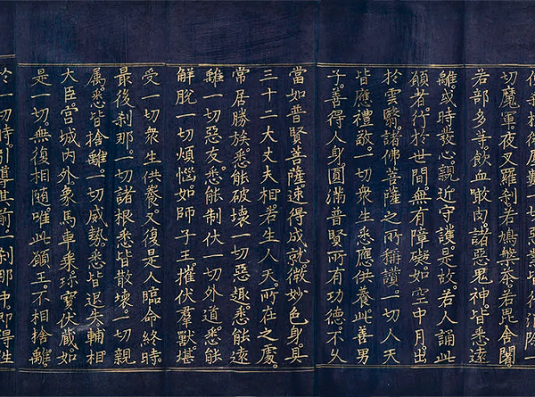 切魔軍夜叉羅剎若鳩槃荼若毘舍闍
若部多等飲血噉肉諸惡鬼神皆悉遠
離或時發心親近守護是故若人誦此
願者行於世間無有障礙如空中月出
於雲翳諸佛菩薩之所稱讚一切人天
皆應禮敬一切衆生悉應供養此善男
子善得人身圓滿普賢所有功德不久
當如普賢菩薩速得成就微妙色身具
三十二大丈夫相若生人天所在之處
常居勝族悉能破壞一切惡趣悉能遠
離一切惡友悉能制伏一切外道悉能
解脫一切煩惱如師子王摧伏羣獸堪
受一切衆生供養又復是人臨命終時
最後剎那一切諸根悉皆散壞一切親
属悉皆捨離一切威勢悉皆退失輔相
大臣宮城內外象馬車乘珎寶伏藏如
是一切無復相隨唯此願王不相捨離
於一切時引導其前一剎那中即得往